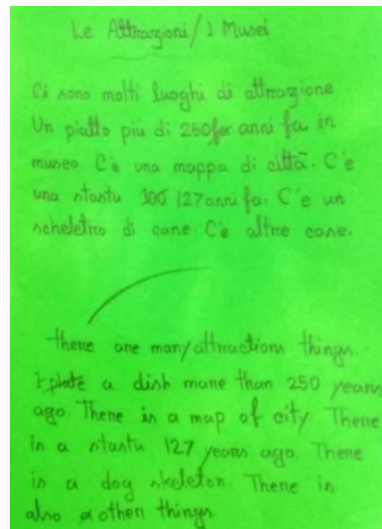 Le Attrazioni/I Musei
Ci sono molti luoghi di attrazione
Un piatto più di 250 anni fa in
museo. C'è una mappa di città. C'è
una stastu 127 anni fa. C'è un
scheletro di cane. C'è altre cose.
there are many attractions things.
a dish more than 250 years
ago. There is a map of city. There
is a stastu 127 years ago. There
is a dog skeleton. There is
also other things.